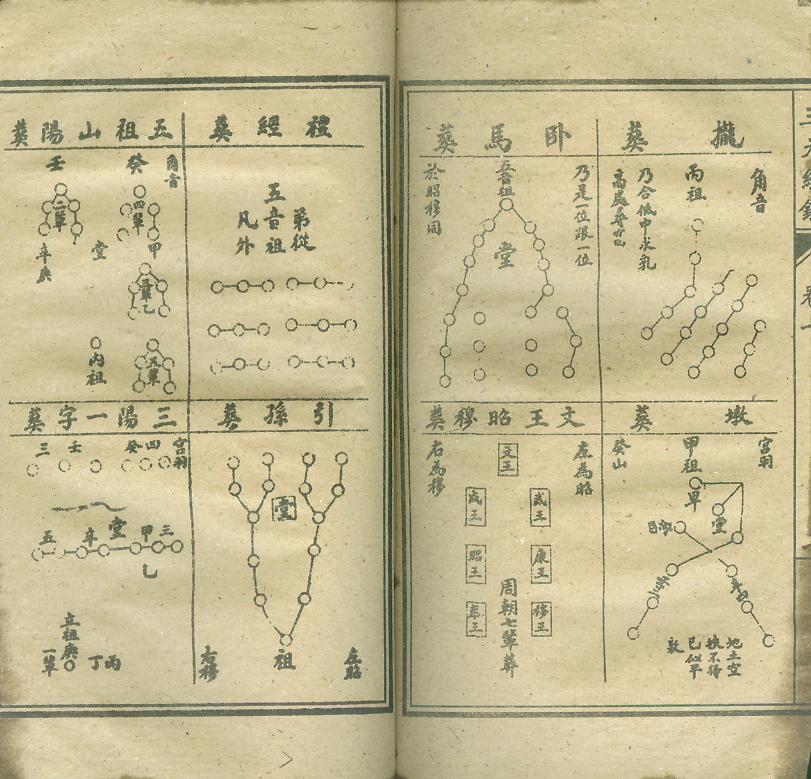 攏葬
角音
丙祖
乃合低中求乳
臥馬葬
乃是一位跟一位
吾祖
堂
於昭穆同
墩葬
宮羽
甲祖
堂
癸山
地土空
挨不得
已似平
敦
文王昭穆葬
左為昭
文王
武王
成王
康王
昭王
穆王
共王
周朝七輩葬
右為穆
禮經葬
弟從
五音祖
凡外
五祖山陽葬
角音
癸
四輩
甲
乙
三輩
壬
二輩
堂
辛庚
丙祖
引孫葬
堂
祖
左昭
右穆
三陽一字葬
宮羽
四
癸
壬
三
三
甲
堂
辛
五
乙
立祖庚
一輩
丙
丁